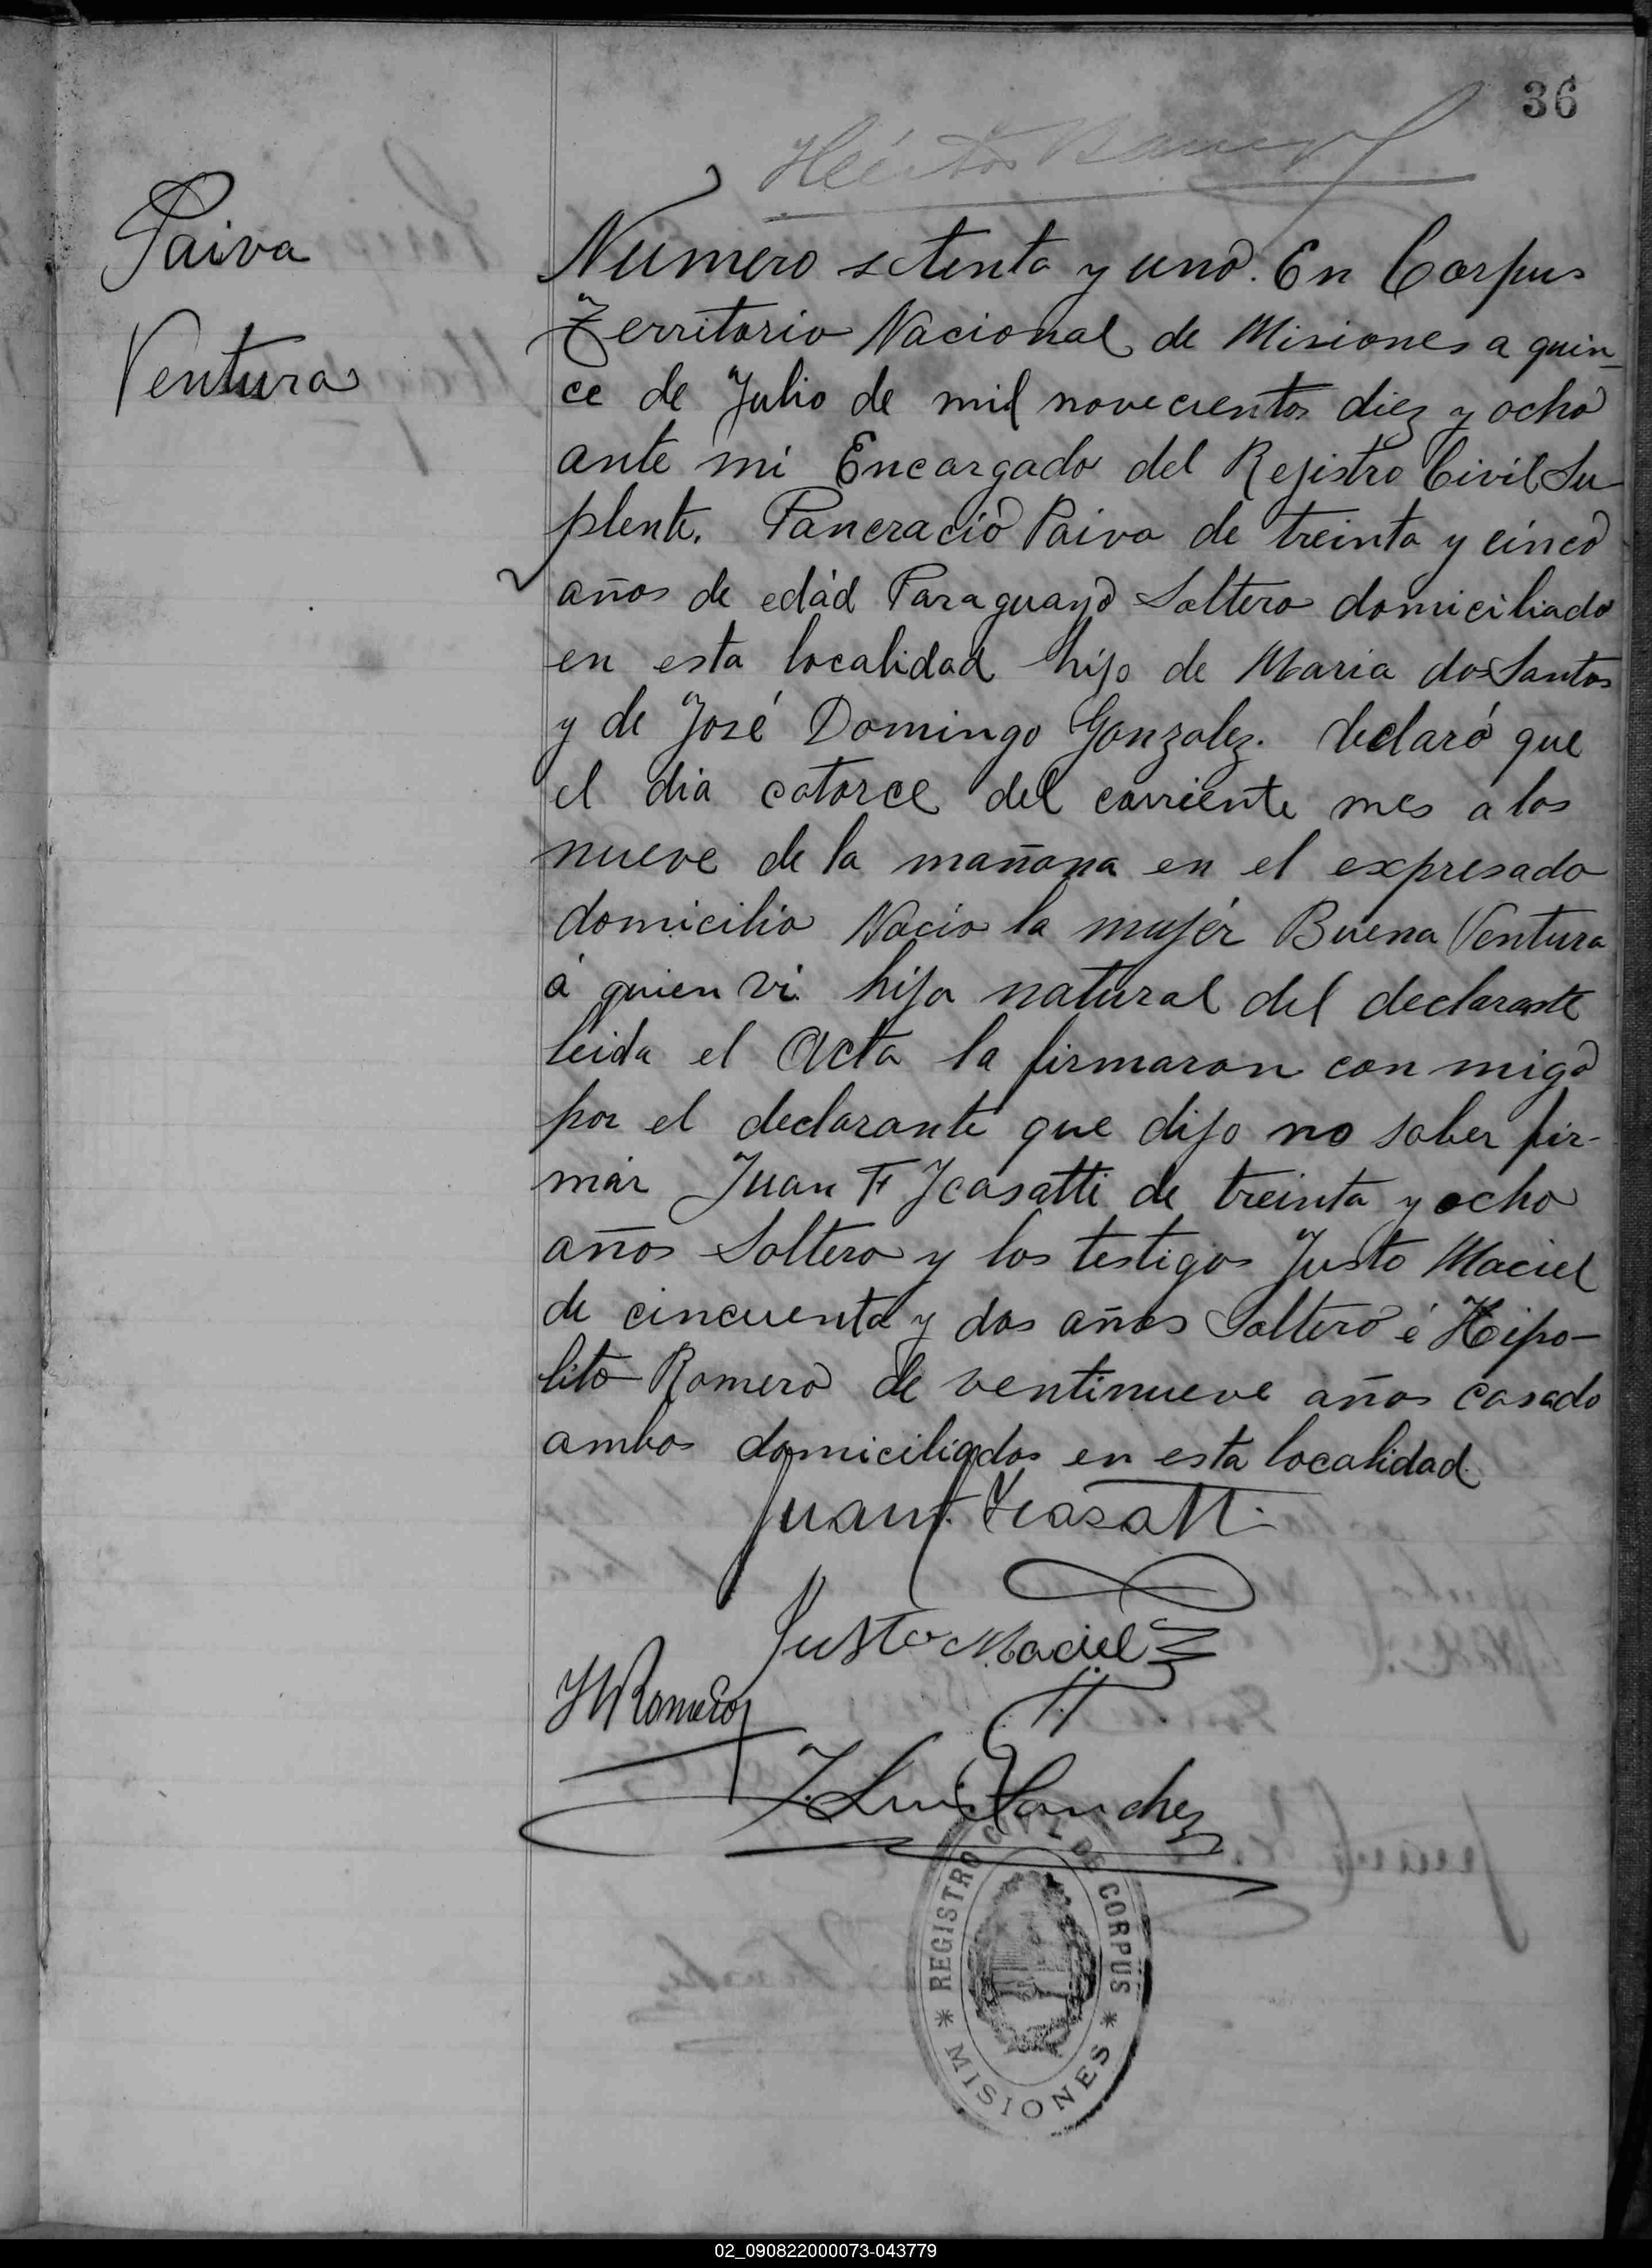 36
Paiva
Ventura
Numero setenta y uno. En Corpus
Territorio Nacional de Misiones a quin
ce de Julio de mil novecientos diez y ocho
ante mi Encargado del Rejistro Civil Su
plente. Pancracio Paiva de treinta y cinco
años de edád Paraguayo Soltero domiciliado
en esta localidad hijo de Maria dos Santos
y de José Domingo Gonzalez. declaró que
el dia catorce del corriente mes a las
nueve de la mañana en el expresado
domicilio Nacio la mujér Buena Ventura
á quien vi hija natural del declarante
leida el Acta la firmaron con migo
por el declarante que dijo no saber fir-
mar Juan F Icasatti de treinta y ocho
años Soltero y los testigos Justo Maciel
de cincuenta y dos años Soltero é Hipo-
lito Romero de ventinueve años casado
ambos domiciliados en esta localidad.
Juan F. Icasatti
Justo Maciel
H Romero
J. Luis Sanchez
REGISTRO CIVIL DE CORPUS
* MISIONES *
02_090822000073-043779